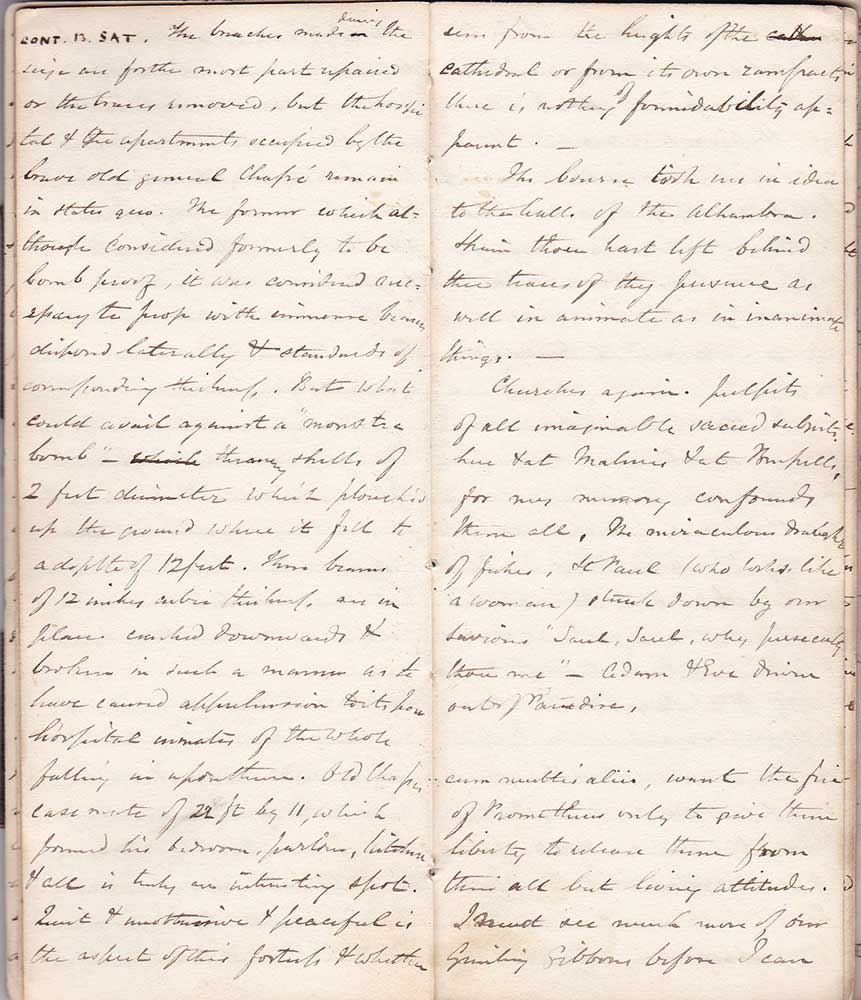 CONT. 13. SAT. The breaches made during the
siege are for the most part repaired
or the traces removed, but the hospi
tal & the apartments occupied by the
brave old general Chassé remain
in statu quo. The former which al=
though considered formerly to be
bomb proof, it was considered nec=
essary to prop with immense beams
disposed laterally & standards of
corresponding thickness. But what
could avail against a "monstre
bomb" – which throwing shells of
2 feet diameter which ploughed
up the ground where it fell to
a depth of 12 feet. These beams
of 12 inches cubic thickness are in
places crushed downwards &
broken in such a manner as to
have caused apprehension to its poor
hospital inmates of the whole
falling in upon them. Old Chassés
casemate of 22 ft by 11, which
formed his bedroom, parlour, kitchen
& all is truly an interesting spot.
Quiet & & peaceful is
the aspect of this fortress & whether
seen from the heights of the
cathedral or from its own ramparts
there is nothing of formidability ap=
parent. –
The bourse took us in idea
to the halls of the Alhambra.
Spain thou hast left behind
thee traces of thy presence as
well in animate as in inanimate
things. –
Churches again. Pulpits
of all imaginable sacred subjects
here & at Malines & at Brussells,
for my memory confounds
them all, The miraculous draught
of fishes, St Paul (who looks like
a woman) struck down by our
saviour "Saul, Saul, why persecutest
thou me" – Adam & Eve driven
out of Paradise,
cum multis aliis, want the fire
of Prometheus only to give them
liberty to release them from
their all but living attitudes.
I must see much more of our
Grinling Gibbons before I can